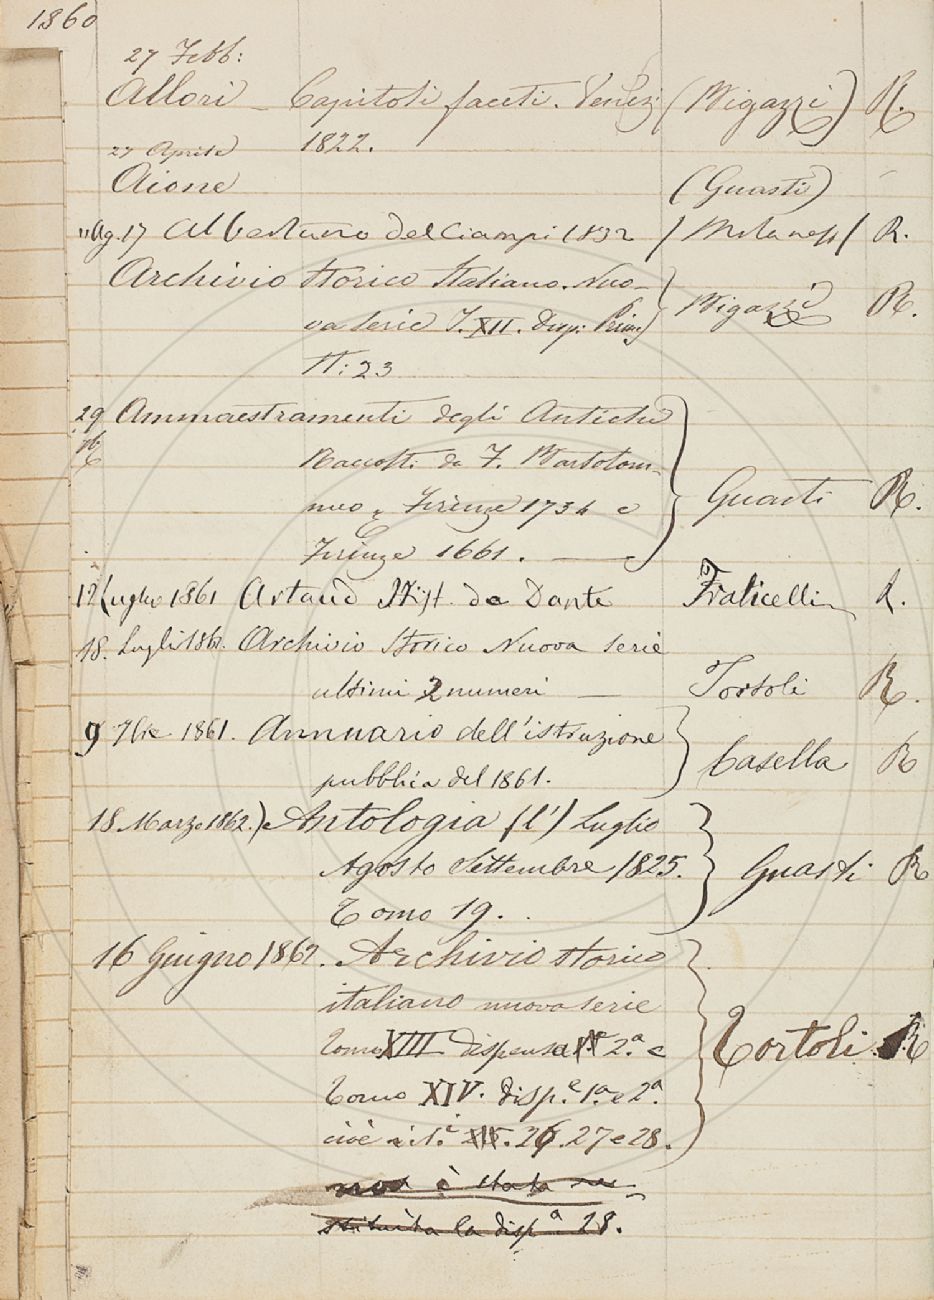 1860
27 Febb:
Allori - Capitoli faceti. Venezi (Bigazzi) R.
1822.
27 Aprile
Aione (Guasti)
"Ag. 17 Albertano del Ciampi 1832 / Milanesi / R.
Archivio Storico Italiano. Nuo- Bigazzi R.
va serie T. XII. Disp: Prima
N: 23
29 Ammaestramenti degli Antichi
Raccolti da F. Bartolom-
meo, Firenze 1734 e Guasti R.
Firenze 1661.
12 Luglio 1861 Artaud Hist. de Dante Fraticelli R.
18. Luglio 1861. Archivio Storico Nuova serie
ultimi 2 numeri — Tortoli R.
9 7bre 1861. Annuario dell'istruzione
pubblica del 1861. Casella R
18 Marzo 1862.) Antologia (l') Luglio
Agosto Settembre 1825. Guasti R
Tomo 19.
16 Giugno 1862. Archivio storico
italiano nuova serie
Tomo XIII dispensa 2.a e Tortoli. R
Tomo XIV. disp.e 1.a e 2.a
cioè i 26. 27 e 28.
non è stata re-
stituita la disp.a 28.